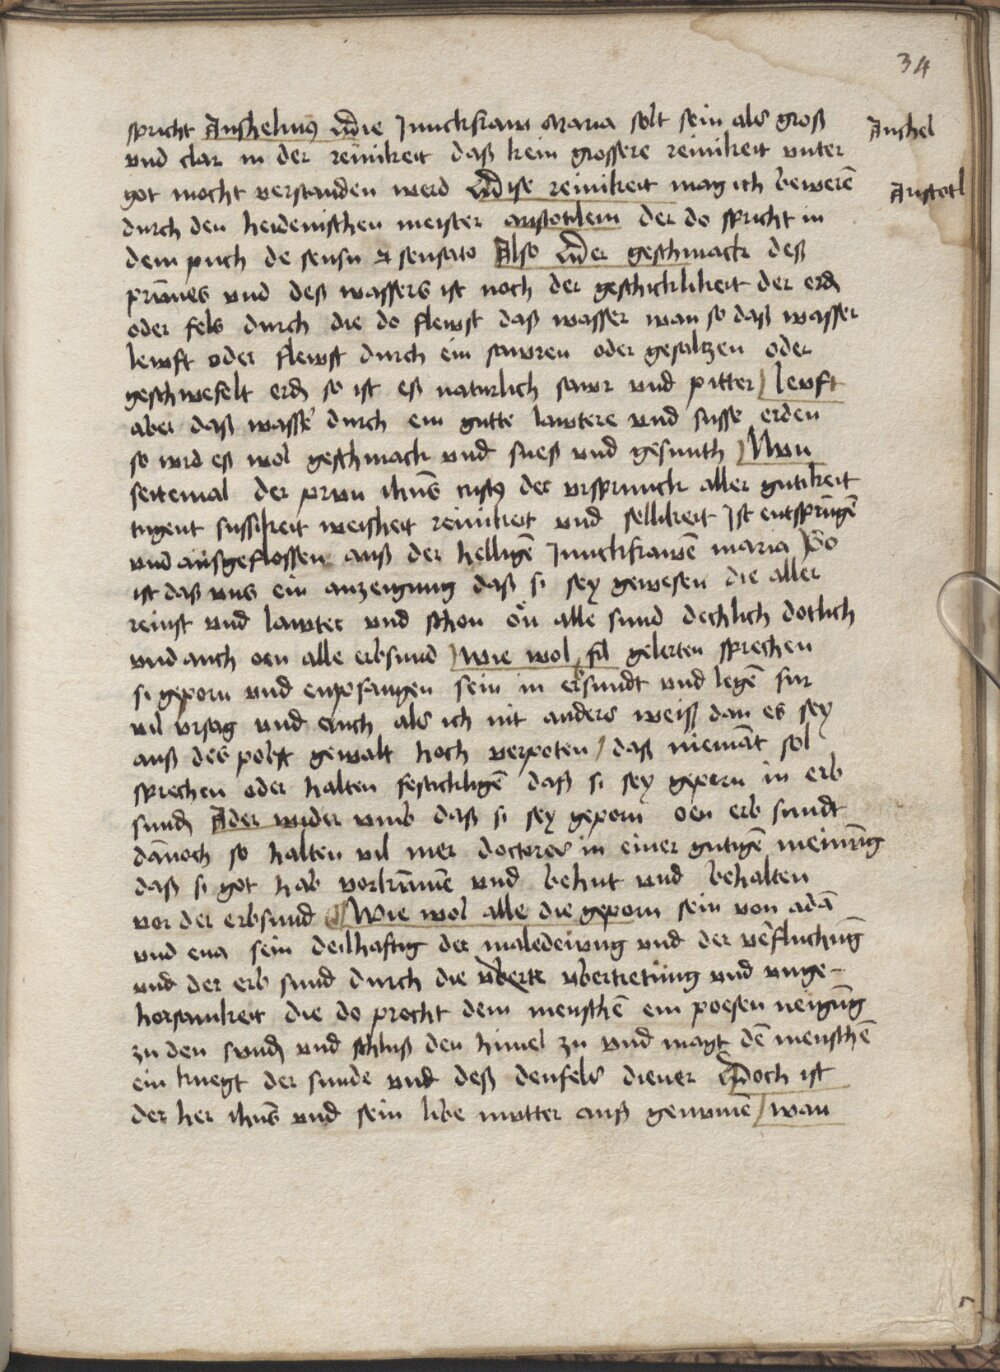 34
spricht Anshelmus Die Junckfraw Maria solt sein als groß
Anshel
vnd clar in der reinikeit daß kein grossere reinikeit vnter
got mocht verstanden werd Dise reinikeit mag ich bewerē
Aristotl
durch den heidenischen meister aristotilem der do spricht in
dem puch de sensu et sensato Also Der geschmack deß
prunnes vnd deß wassers ist noch der geschicklikeit der erd
oder fels durch die do flewst daß wasser wan so daß wasser
lewft oder flewst durch ein sawren oder gesaltzen oder
geschwefelt erd so ist eß naturlich sawr vnd pitter lewft
aber daß wasser durch ein gutte lawtere vnd susse erden
so wird eß wol geschmack vnd sueß vnd gesunth Nvn
seitemal der prun ihūs cristus der vrsprunck aller gutikeit
tugent sussikeit weisheit reinikeit vnd sellikeit Ist entsprūgē
vnd ausgeflossen auß der helligē Junckfrawē maria So
ist daß vns ein anzeigung daß si sey gewesen die aller
reinst vnd lawter vnd schon on alle sund dechlich dotlich
vnd auch oen alle erbsund wie wol fil gelerten sprechen
si geporn vnd enpfangen sein in erbsundt vnd legē fur
vil vrsag vnd auch als ich nit anders weiß dan es sey
auß des pobst gewalt hoch verpoten / daß niemāt sol
sprechen oder halten festicklichē daß si sey geporn in erb
sund Ader wider vmb daß si sey geporn oen erb sundt
dānoch so halten vil mer doctores in einer gutigē meinūg
daß si got hab vorkūmē vnd behut vnd behalten
vor der erbsund Wie wol alle die geporn sein von adā
vnd eua sein deilhaftig der maledeiung vnd der verfluchūg
vnd der erb sund durch die vberte vbertretūng vnd vnge-
horsamkeit die do procht dem menschē ein poesen neigūg
zu den sund vnd schluß den himel zu vnd magt dē menschē
ein knegt der sunde vnd deß deufels diener Doch ist
der her ihūs vnd sein libe mutter auß genomē wan